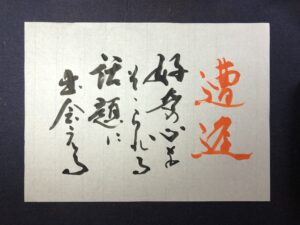 遭逢
好奇心を
そそられる
話題に
出会える